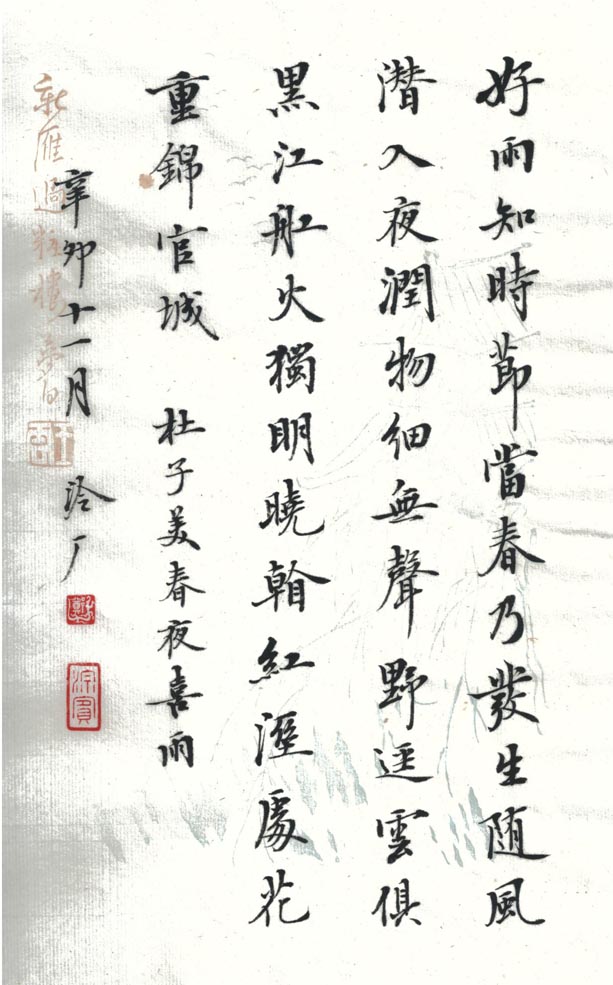 好雨知時莭當春乃發生随風
潜入夜潤物細無聲野逕雲俱
黑江舡火獨明曉看紅溼處花
重錦官城 杜子美春夜喜雨
辛卯十一月 泠厂
新雁過粧樓